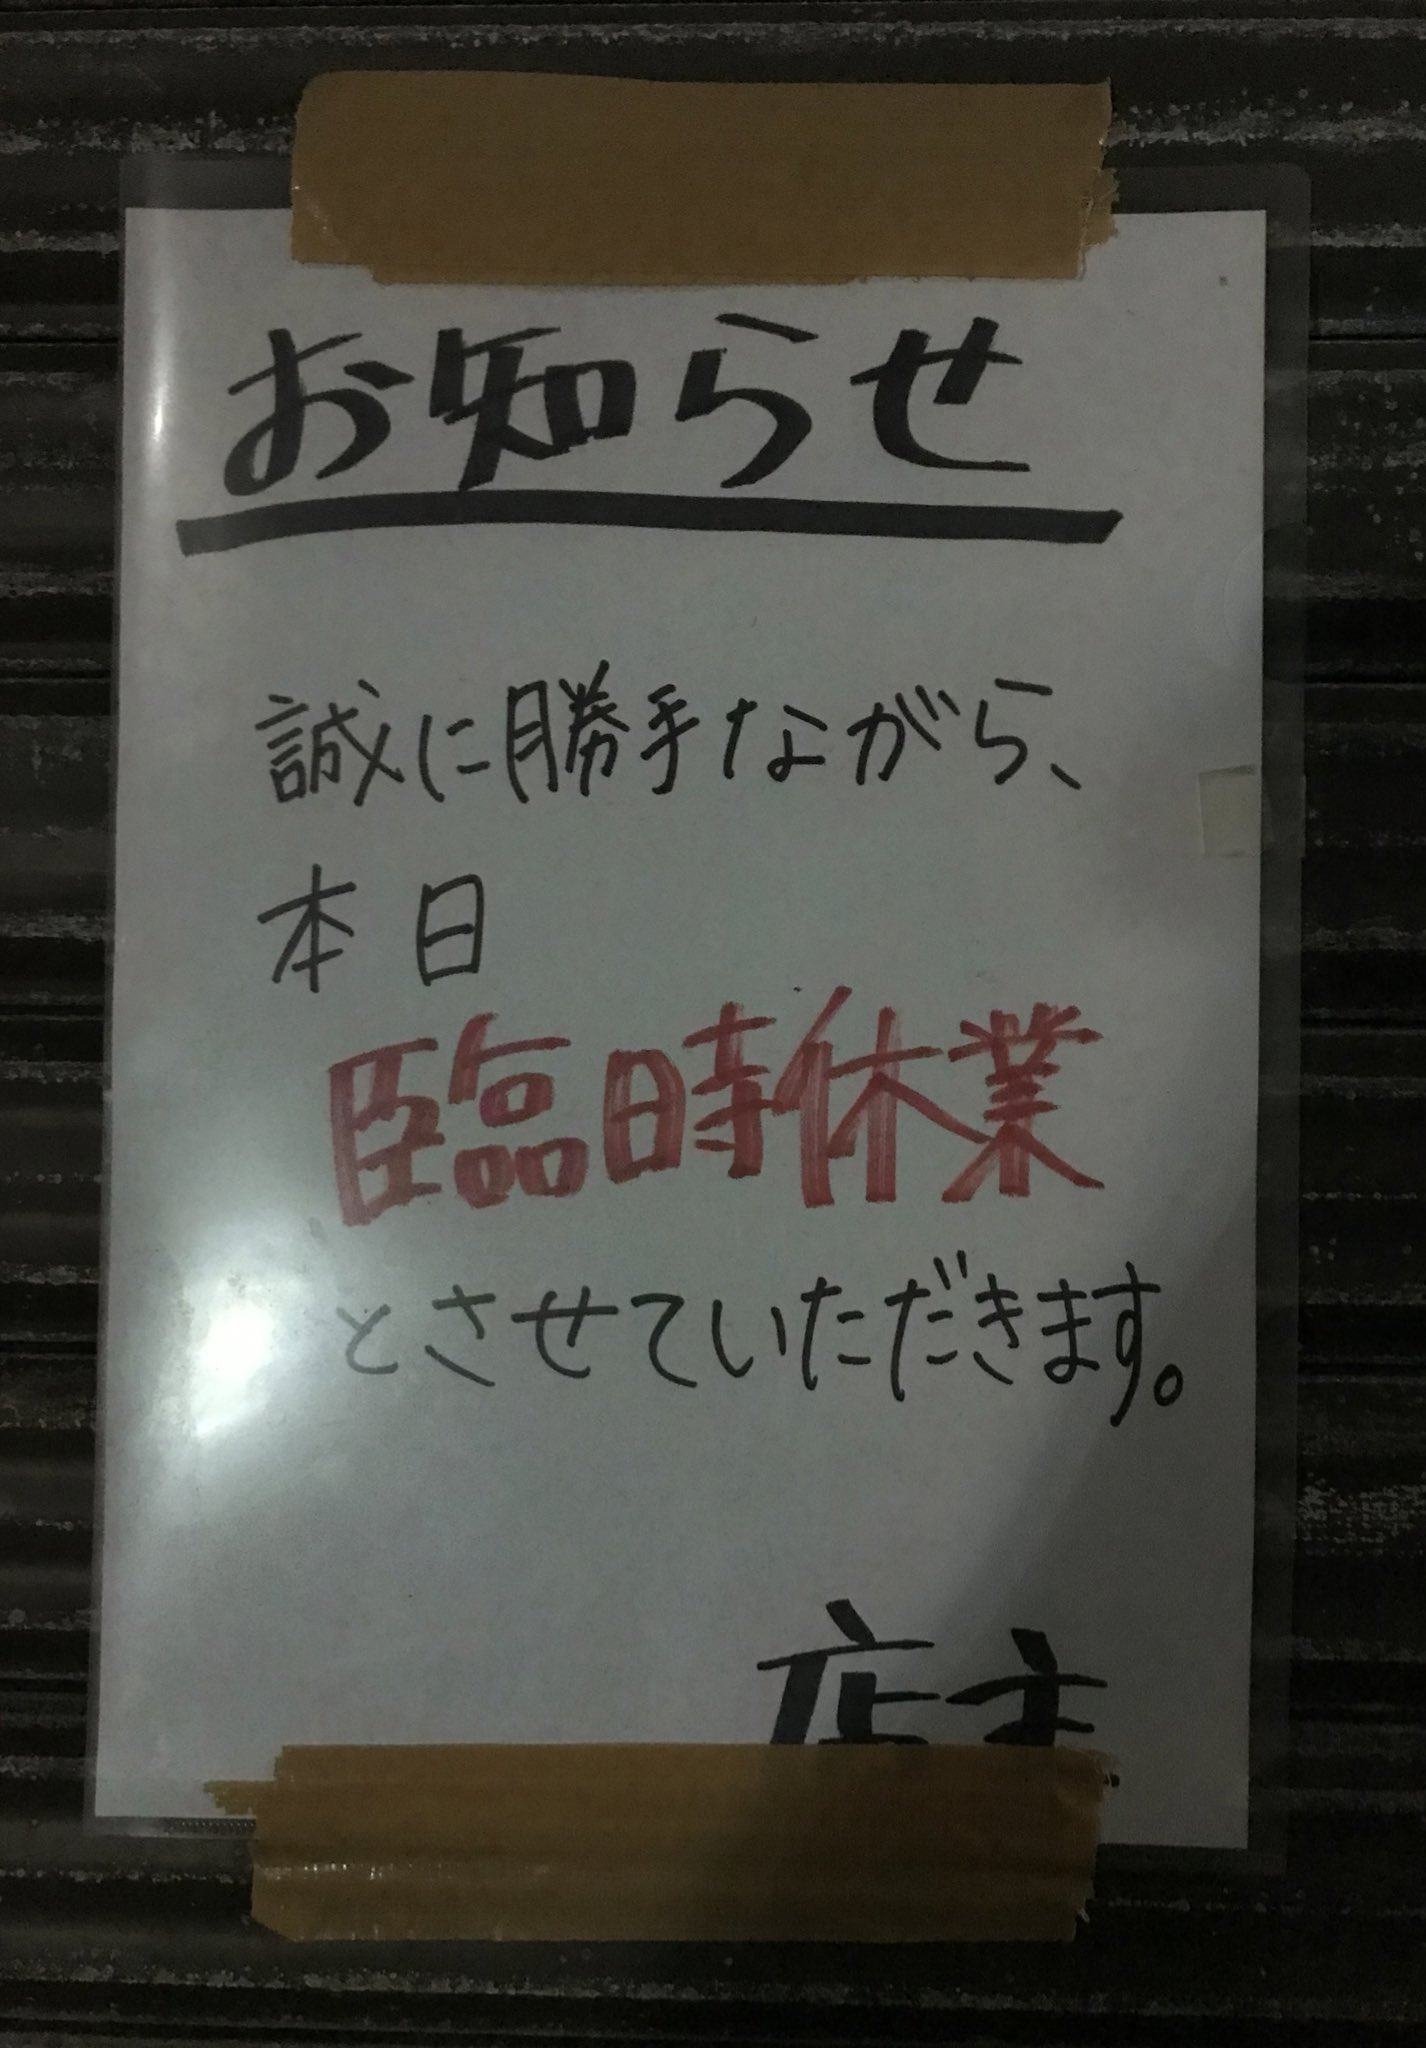 お知らせ
誠に勝手ながら、
本日
臨時休業
とさせていただきます。
店主